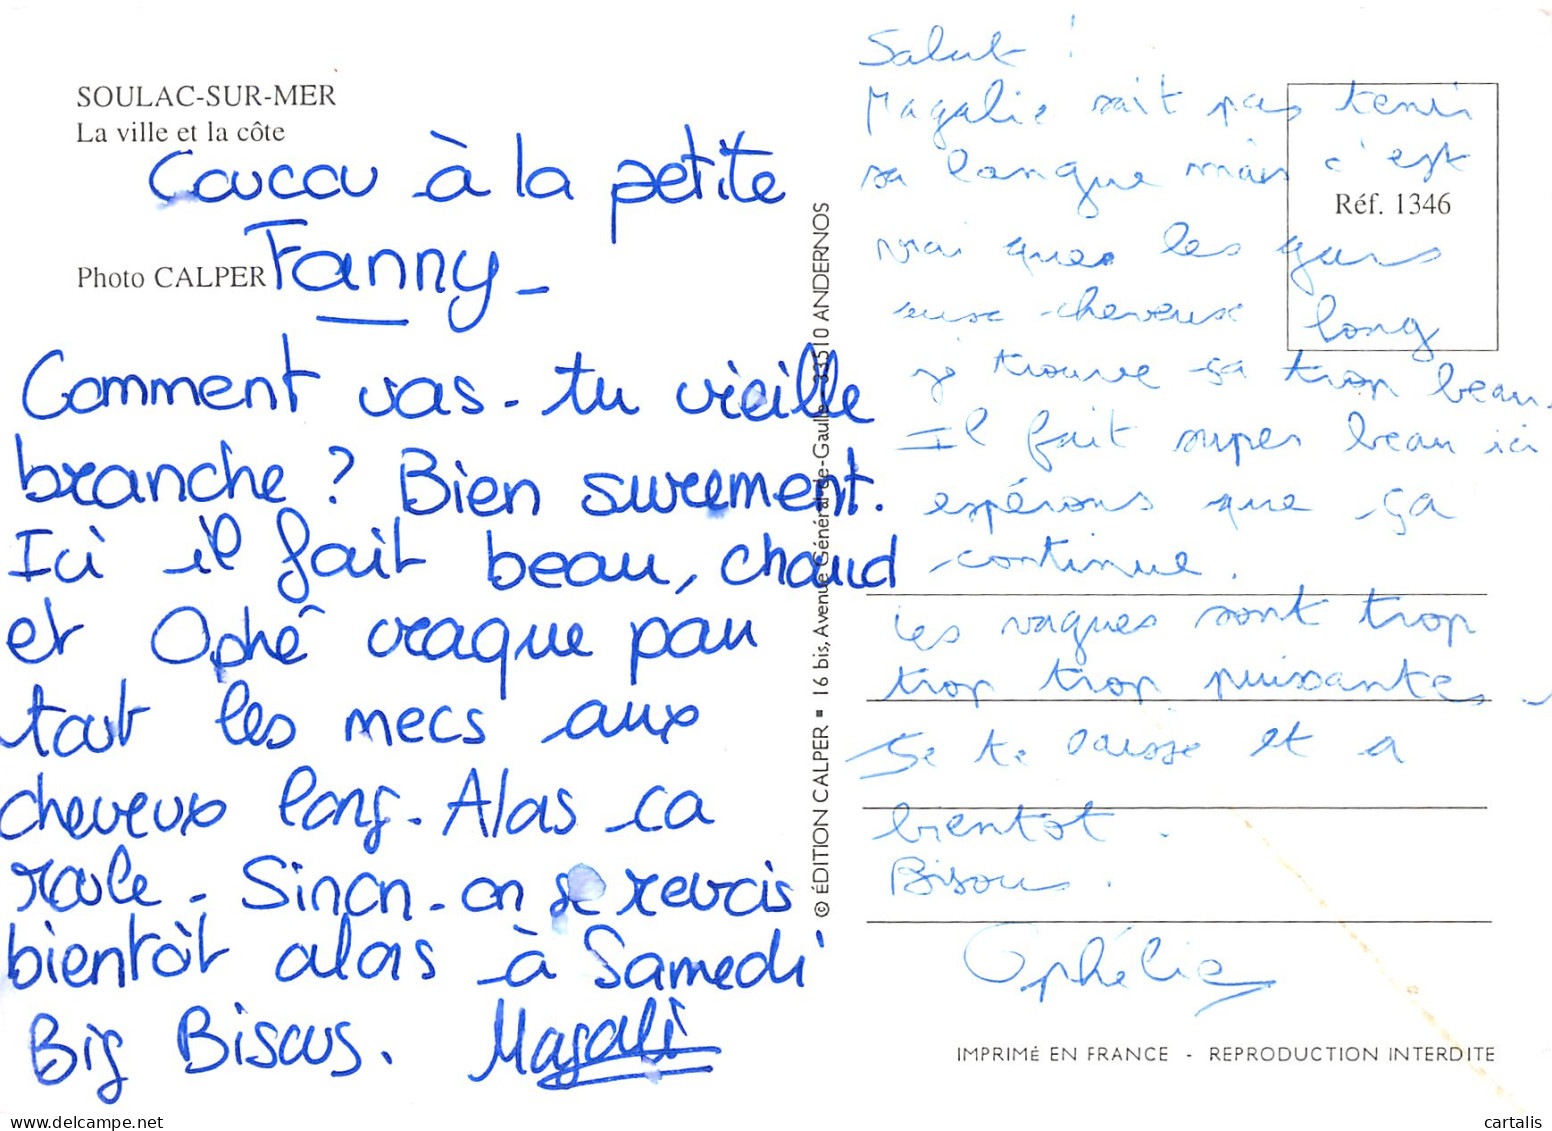 SOULAC-SUR-MER
La ville et la côte
Coucou à la petite
Photo CALPER
Fanny -
Comment vas-tu vieille
branche ? Bien surement.
Ici il fait beau, chaud
et Ophé craque pau
tout les mecs aux
cheveux long. Alos ca
roule - Sinon - on se revois
bientôt alors à Samedi
Big Bisous. Magali
© ÉDITION CALPER ■ 16 bis, Avenue Général-de-Gaulle - 33510 ANDERNOS
Salut !
Magalie sait pas tenir
sa langue mais c'est
Réf. 1346
vrai ques les gars
aux cheveux long
je trouve ça trop beau.
Il fait super beau ici
espérons que ça
continue.
Les vagues sont trop
trop trop trop puissantes -
Je te laisse et a
bientot.
Bisous.
Ophélie
IMPRIMé EN FRANCE - REPRODUCTION INTERDITE
cartalis